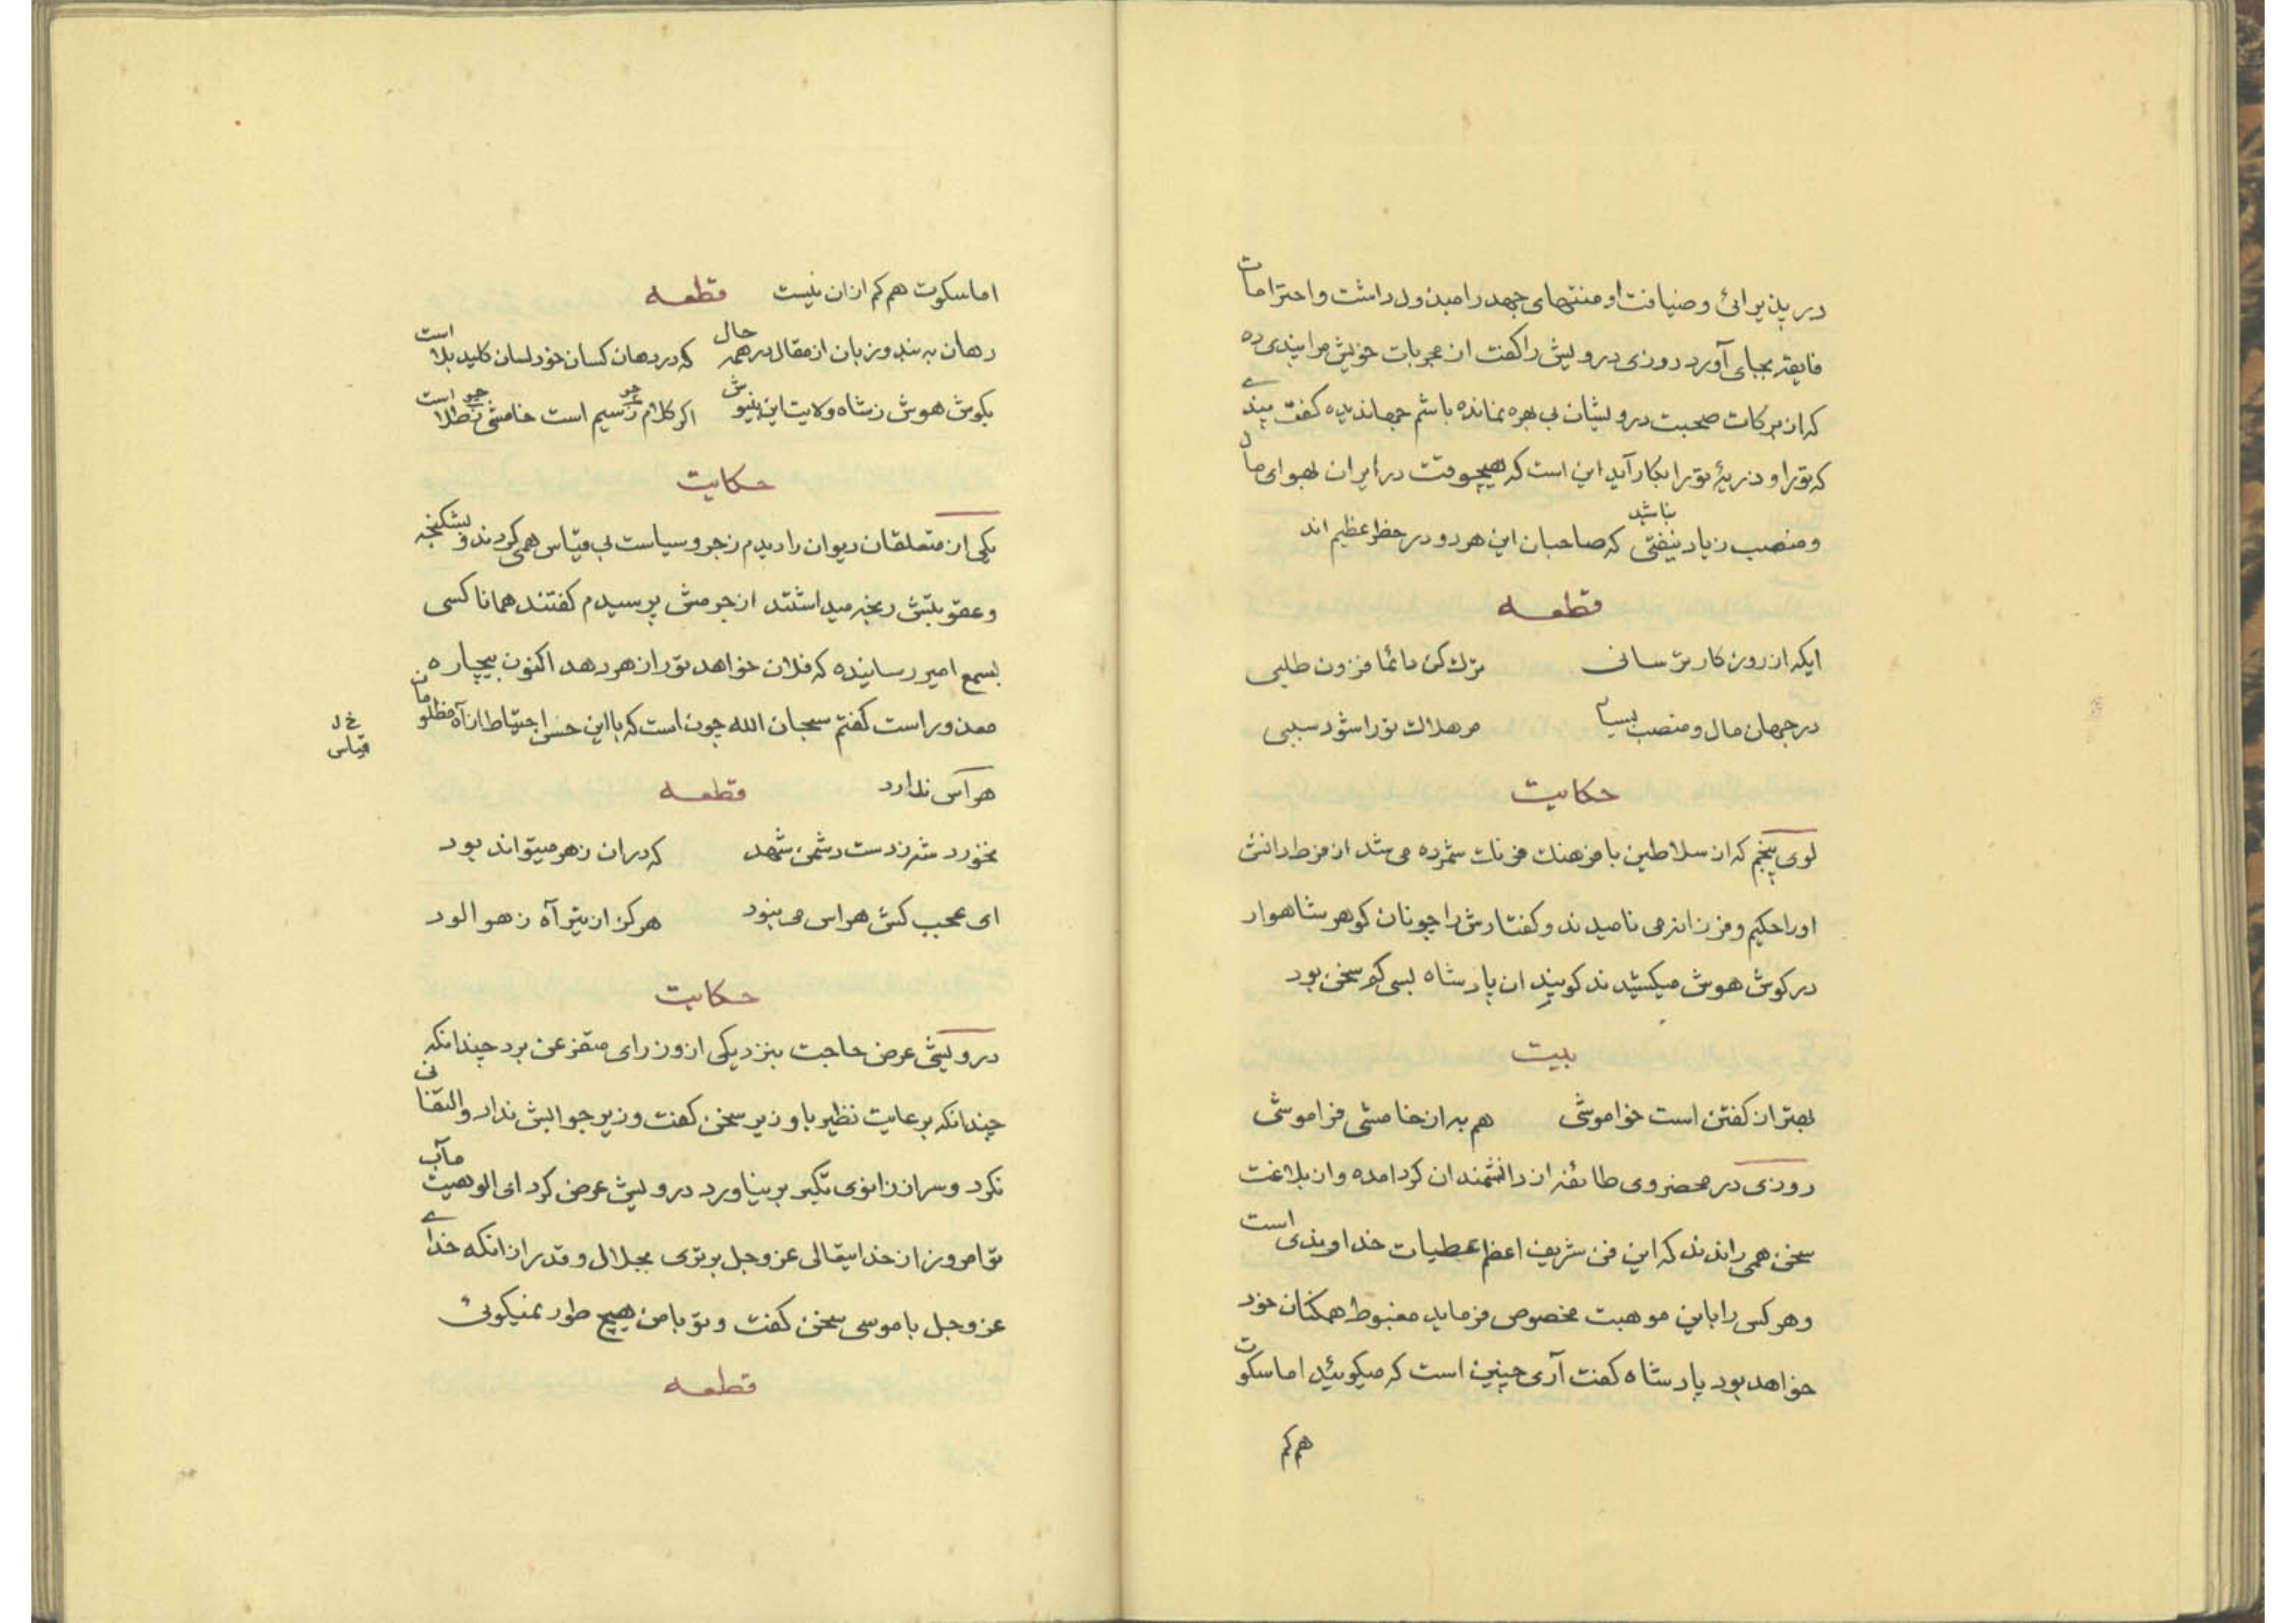 در پذیرائی و ضیافت او منتهای جهد را مبذول داشت و احترامات
فایقه بجای آورد روزی درویش را کفت از مجربات خویش مرا پندی ده
که از برکات صحبت درویشان بی بهره نمانده باشم جهاندیده کفت پندی
که تو را و ذریهٔ تو را بکار آید این است که هیچوقت در ایران بهوای مال
و منصب زیاد نیفتی بناشد که صاحبان این هر دو در خطر عظیم اند
قطعه
ایکه از روزکار ترسانی ترک کن دائما فزون طلبی
در جهان مال و منصب بسیار مر هلاک تو را شود سببی
حکایت
لوی پنجم که از سلاطین با فرهنک فرنک شمرده می شد از فرط دانش
او را حکیم و فرزانه می نامیدند و کفتارش را چونان کوهر شاهوار
در کوش هوش میکشیدند کویند ان پادشاه بسی کم سخن بود
بیت
بهتر از کفتن است خواموشی هم به از خامشی فراموشی
روزی در محضر وی طائفه از دانشمندان کرد امده و از بلاغت
سخن همی راندند که این فن شریف اعظم عطیات خداوندی است
و هر کس را باین موهبت مخصوص فرماید مغبوط همکنان خود
خواهد بود پادشاه کفت آری چنین است که میکوئید اما سکوت
هم کم
اما سکوت هم کم از ان نیست قطعه
دهان به بند و زبان از مقال در همه حال که در دهان کسان خود لسان کلید بلا است
بکوش هوش ز شاه ولایت این بنیوش اکر کلام ز سیم است خامشی ز طلا است
حکایت
یکی از متعلقان دیوان را دیدم زجر و سیاست بی قیاس همی کردند و بشکنجه
و عقوبتش رنجه میداشتند از جرمش پرسیدم کفتند همانا کسی
بسمع امیر رسانیده که فلان خواهد تو را زهر دهد اکنون بیچاره
معذور است کفتم سبحان الله چون است که با این حسن احتیاط از آه مظلومان
خ ل
قیاس
هراس ندارد قطعه
نخورد شه ز دست دشمن شهد که دران زهر میتواند بود
ای عجب کش هراس می نبود هرکز از تیر آه زهر الود
حکایت
درویشی عرض حاجت بنزد یکی از وزرای متفرعن برد چندانکه
چندانکه برعایت نظیر با وزیر سخن کفت وزیر جوابش نداد و التفاتی
نکرد و سر از زانوی تکبر بر نیاورد درویش عرض کرد ای الوهیت مآب
تو امروز از خدایتعالی عز و جل برتری بجلال و قدر از انکه خدای
عز و جل با موسی سخن کفت و تو با من هیچ طور نمیکوئی
قطعه